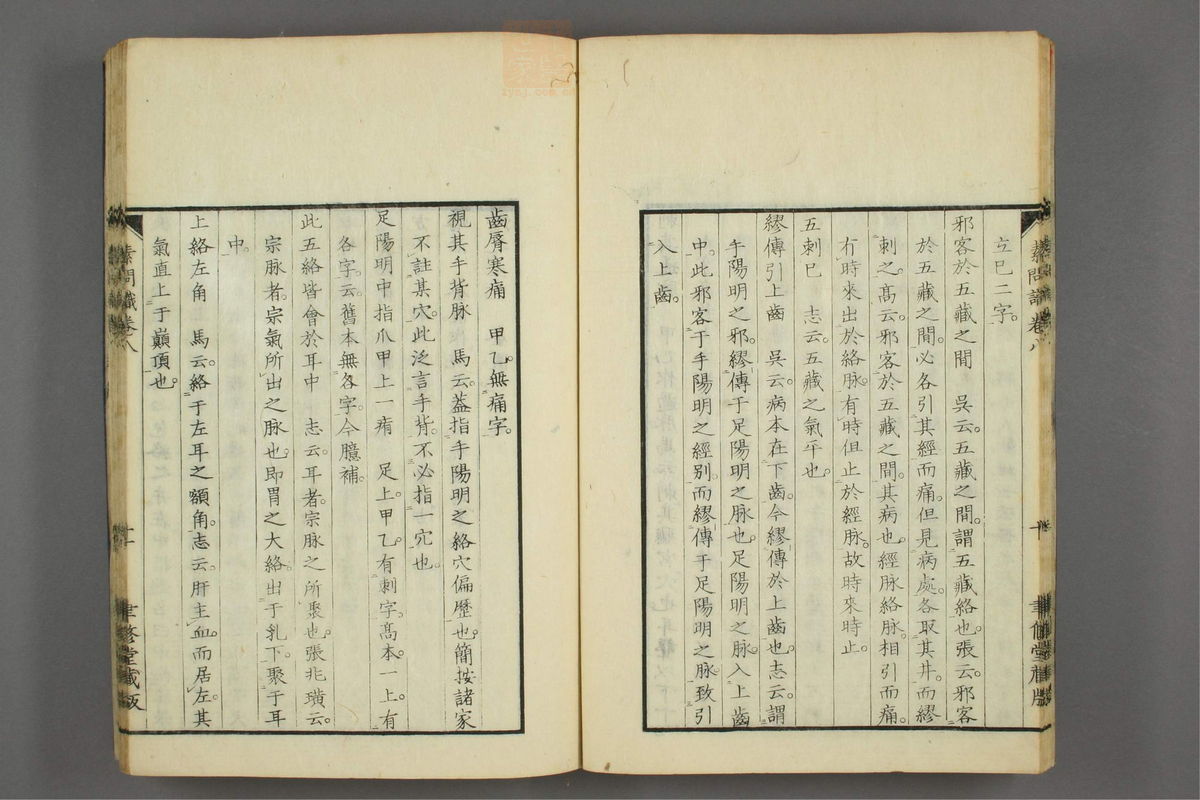 素問識卷八
十
聿修堂藏版
立巳二字。
邪客於五藏之間　吳云。五藏之間。謂五藏絡也。張云。邪客
於五藏之間。必各引其經而痛。但見病處。各取其井。而繆
刺之。高云。邪客於五藏之間。其病也。經脈絡脈。相引而痛。
有時來出於絡脈。有時但止於經脈。故時來時止。
五刺巳　志云。五藏之氣平也。
繆傳引上齒　吳云。病本在下齒。今繆傳於上齒也。志云。謂
手陽明之邪。繆傳于足陽明之脉也。足陽明之脉。入上齒
中。此邪客于手陽明之經別。而繆傳于足陽明之脉。致引
入上齒。
齒脣寒痛　甲乙。無痛字。
視其手背脉　馬云。蓋指手陽明之絡穴偏歷也。簡按諸家
不註某穴。此泛言手背。不必指一穴也。
足陽明中指爪甲上一痏　足上。甲乙。有刺字。高本。一上。有
各字。云。舊本無各字。今臆補。
此五絡皆會於耳中　志云。耳者。宗脈之所聚也。張兆璜云。
宗脉者。宗氣所出之脉也。即胃之大絡。出于乳下。聚于耳
中。
上絡左角　馬云。絡于左耳之額角。志云。肝主血。而居左。其
氣直上于巔頂也。
素問識卷八
十一
聿修堂藏版